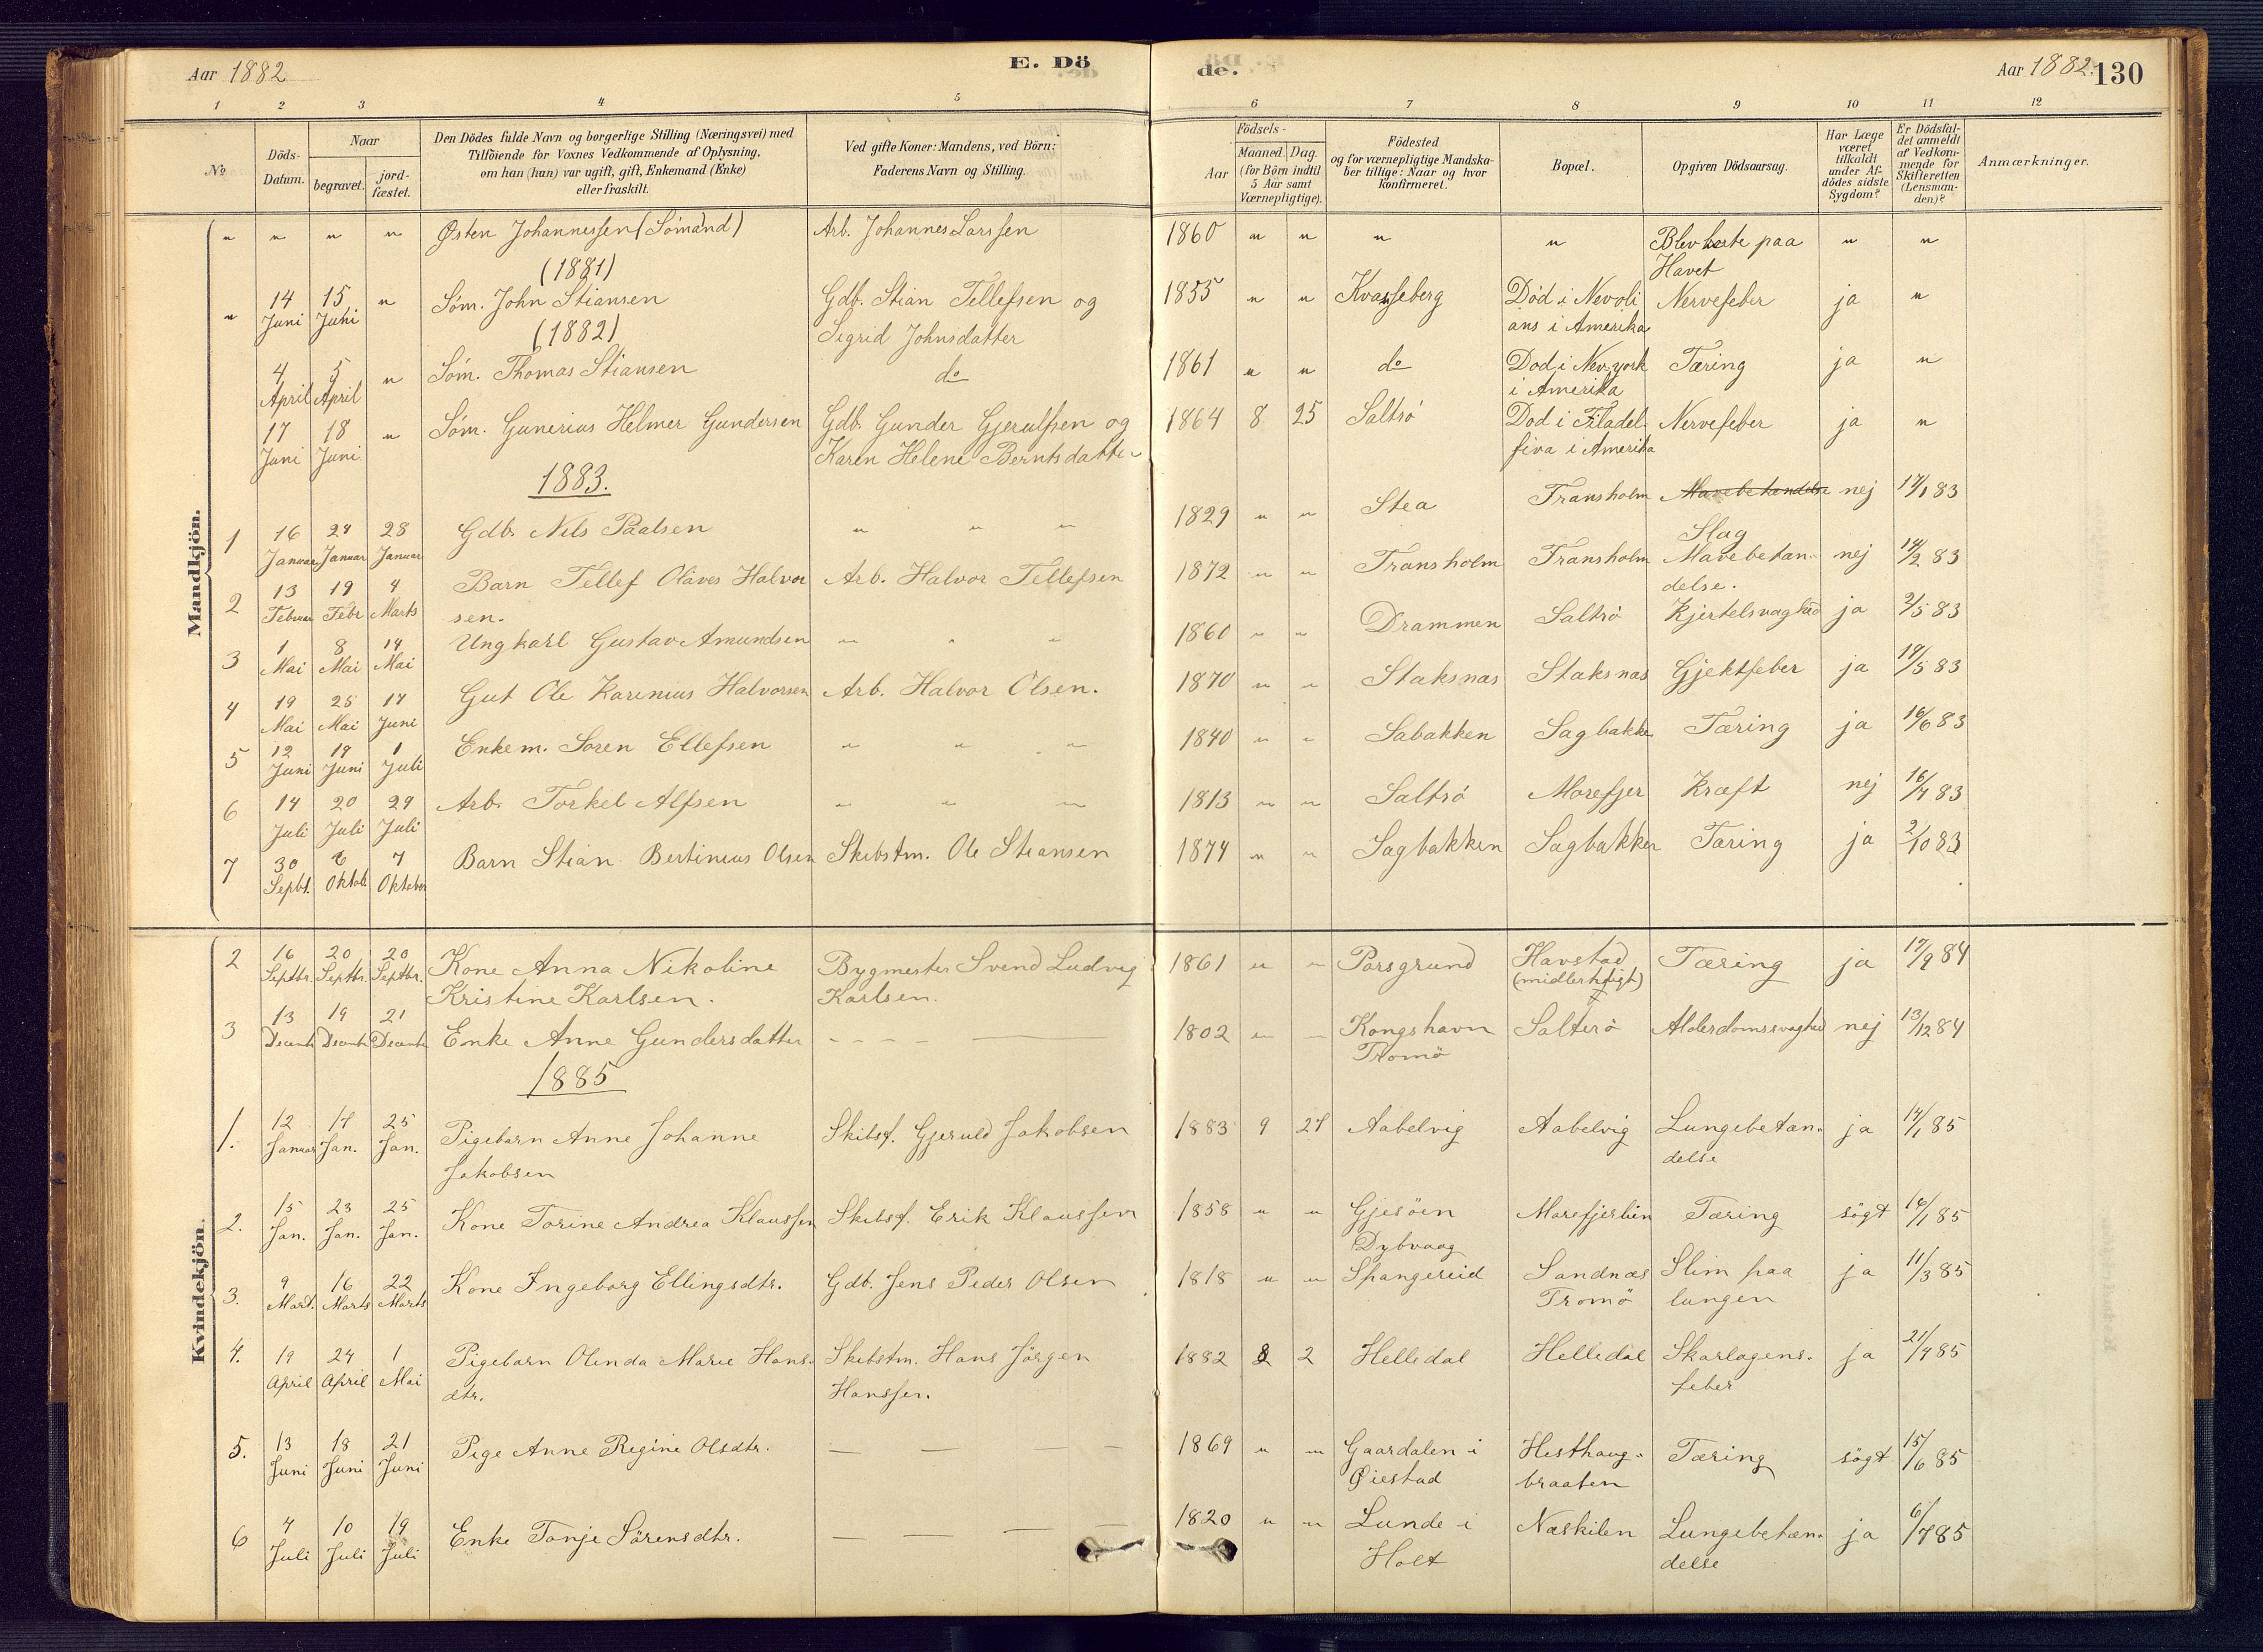 Aar 1882
E. Dö
de.
Aar 1882. 130
1 2 3 4 5 6 7 8 9 10 11 12
No
Döds-
Datum.
Naar
begravet.
jord-
fæstet.
Den Dödes fulde Navn og borgerlige Stilling (Næringsvei) med
Tilföiende for Voxnes Vedkommende af Oplysning,
om han (hun) var ugift, gift, Enkemand (Enke)
eller fraskilt.
Ved gifte Koner: Mandens, ved Börn:
Faderens Navn og Stilling.
Födsels-
Aar
Maaned. Dag.
(for Börn indtil
5 Aar samt
Værnepligtige).
Födested
og for værnepligtige Mandska-
ber tillige: Naar og hvor
konfirmeret.
Bopæl.
Opgiven Dödsaarsag.
Har Læge
været
tilkaldt
under Af-
dödes sidste
Sygdom?
Er Dödsfal-
det anmeldt
af Vedkom-
mende for
Skifteretten
(Lensman-
den)?
Anmærkninger.
Mandkjön.
" " " " Østen Johannessen (Sömand) Arb. Johannes Larssen 1860 " " " " Blev borte paa " "
Havet
(1881)
" 14 15 " Söm. John Stiansen Gdb. Stian Tellefsen og 1855 " " Kvasseberg Död i Nevoli Nervefeber ja "
Juni Juni Sigrid Johnsdatter ans i Amerika
(1882)
4 5 " Söm. Thomas Stiansen do 1861 " " do Dod i Nevyork Tæring ja "
April April i Amerika
17 18 " Söm. Gunerius Helmer Gundersen Gdb. Gunder Gjerulfsen og 1864 8 25 Saltrö Dod i Filadel Nervefeber ja "
Juni Juni Karen Helene Berntsdatter fiva i Amerika
1883.
1 16 24 28 Gdb. Nils Paalsen " " " 1829 " " Stea Fransholm Mavebetendelse nej 17/1 83
Januar Januar Januar Slag
2 13 19 4 Barn Tellef Olaves Halvor Arb. Halvor Tellefsen 1872 " " Fransholm Fransholm Mavebetan- nej 14/2 83
Februar Febr Marts sen. delse.
3 1 8 14 Ungkarl Gustav Amundsen " " " 1860 " " Drammen Saltrö Kjertelsvaghed ja 2/5 83
Mai Mai Mai
4 19 25 17 Gut Ole Karenius Halvorsen Arb. Halvor Olsen. 1870 " " Staksnas Staksnas Gjektfeber ja 19/5 83
Mai Mai Juni
5 12 19 1 Enkem. Soren Ellefsen " " " 1840 " " Sabakken Sagbakke Tæring ja 16/6 83
Juni Juni Juli
6 14 20 29 Arb. Torkel Alfsen " " " 1813 " " Saltrö Morefjer Kræft nej 16/7 83
Juli Juli Juli
7 30 6 7 Barn Stian Bertinius Olsen Skibstm. Ole Stiansen 1874 " " Sagbakken Sagbakken Tæring ja 2/10 83
Septbt. Oktob. Oktober
Kvindekjön.
2 16 20 20 Kone Anna Nikoline Bygmester Svend Ludvig 1861 " " Porsgrund Havstad Tæring ja 17/9 84
Septbr. Septbr. Septbr. Kristine Karlsen. Karlsen. (midlertidigt)
3 13 19 21 Enke Anne Gundersdatter 1802 " — Kongshavn Salterö Alderdomssvaghed nej 13/12 84
Decemb Decemb Decemb Tromö
1885
1. 12 17 25 Pigebarn Anne Johanne Skibsf. Gjeruld Jakobsen 1883 9 27 Aabelvig Aabelvig Lungebetæn- ja 14/1 85
Januar Jan. Jan. Jakobsen delse
2. 15 23 25 Kone Torine Andrea Klaussen Skibsf. Erik Klaussen 1858 " " Gjesöen Morefjerlien Tæring sögt 16/1 85
Jan. Jan. Jan. Dybvaag
3. 9 16 22 Kone Ingeborg Ellingsdtr. Gdb. Jens Peder Olsen 1818 " " Spangereid Sandnæs Slim paa ja 11/3 85
Mart. Marts Marts Tromö lungen
4. 19 24 1 Pigebarn Olenda Marie Hans- Skibstm. Hans Jörgen 1882 8 2 Helledal Helledal Skarlagens- ja 21/4 85
April April Mai dtr. Hanssen. feber
5. 13 18 21 Pige Anne Regine Olsdtr. — — — — 1869 " " Gaardalen i Hesthaug- Tæring sögt 15/6 85
Juni Juni Juni Öiestad braaten
6 4 10 19 Enke Tonje Sörensdtr. — — — — 1820 " " Lunde i Næskilen Lungebetæn- ja 6/7 85
Juli Juli Juli Holt delse